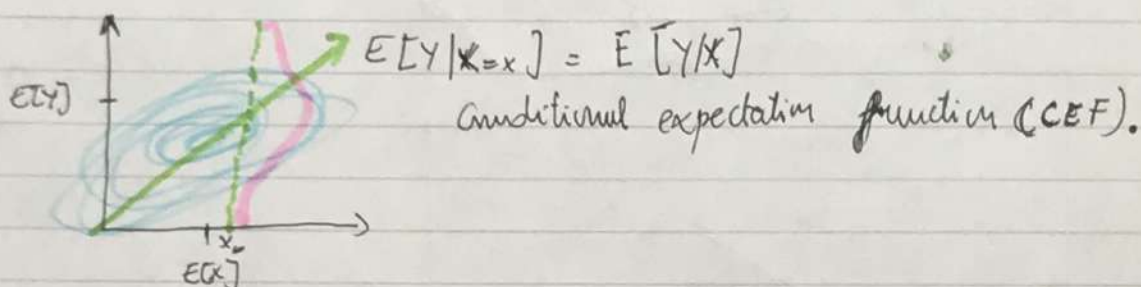 E[Y|X=x] = E[Y|X]
E[Y]
conditional expectation function (CEF).
x₀
E[X]